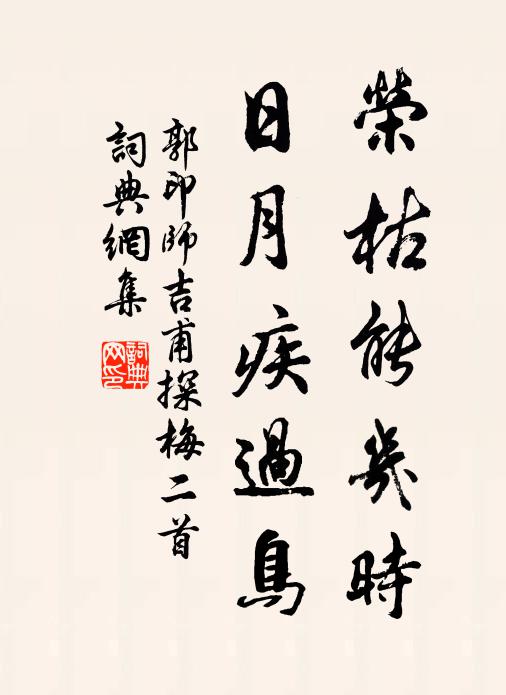 榮枯能幾時
日月疾過鳥
郭印師吉甫探梅二首
詞典網集
詞典網印